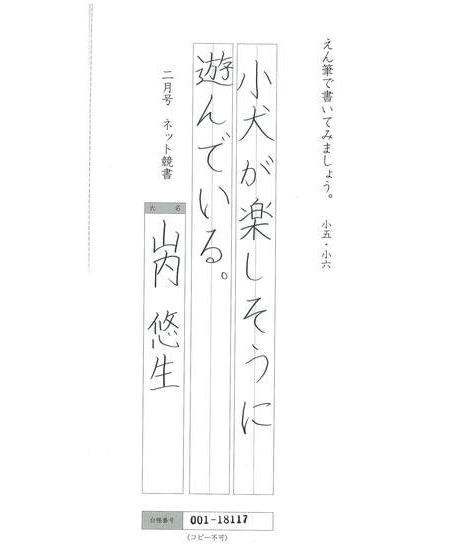 えん筆で書いてみましょう。 小五・小六
小犬が楽しそうに
遊んでいる。
二月号 ネット競書
氏名
山内 悠生
台帳番号 001-18117
(コピー不可)